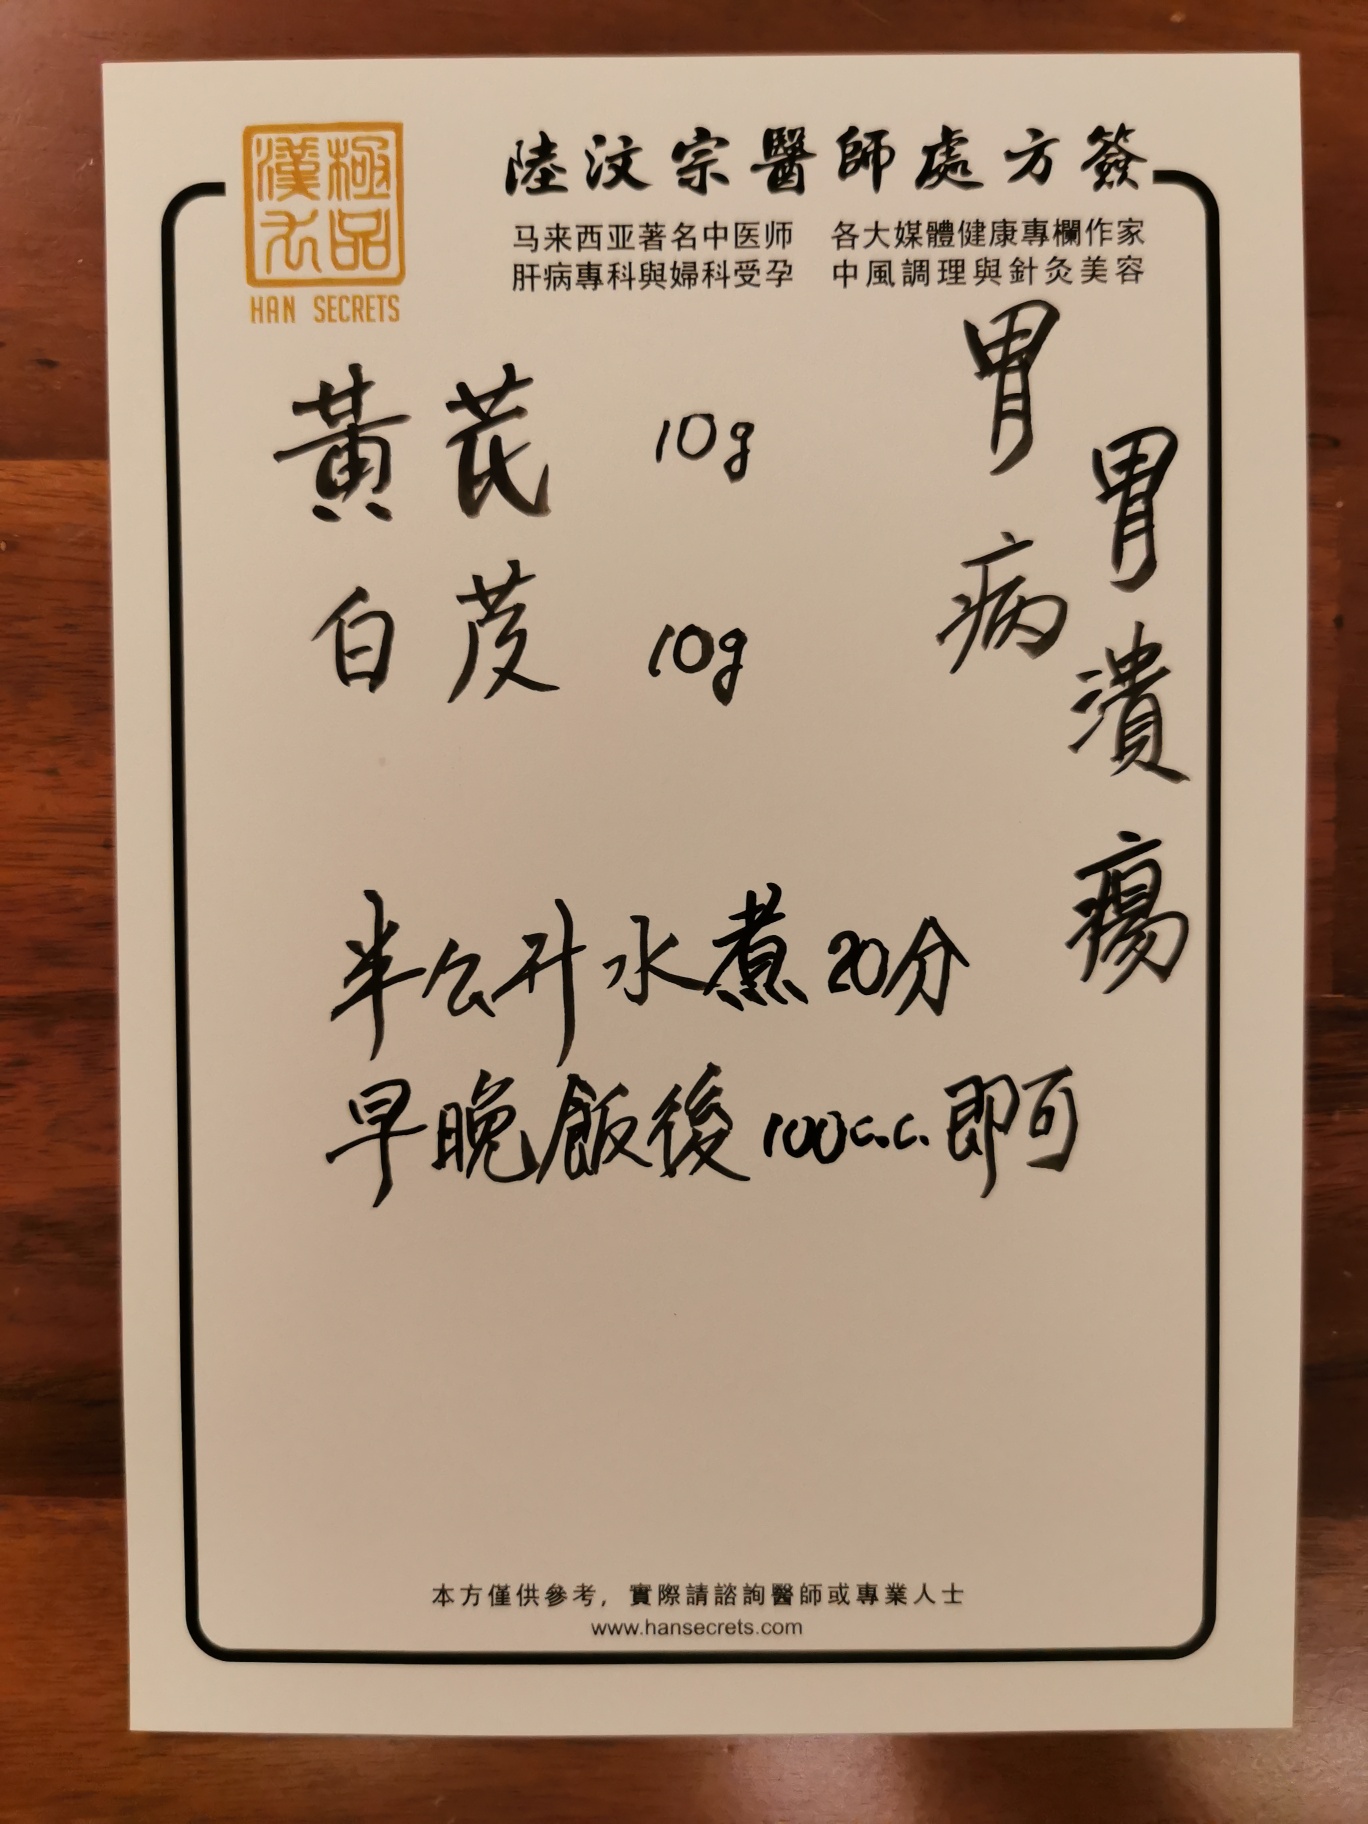 極品
漢
HAN SECRETS
陸汶宗醫師處方簽
马来西亚著名中医师 各大媒體健康專欄作家
肝病專科與婦科受孕 中風調理與針灸美容
胃潰瘍
胃病
黃芪 10g
白芨 10g
半公升水煮20分
早晚飯後100c.c.即可
本方僅供參考，實際請諮詢醫師或專業人士
www.hansecrets.com